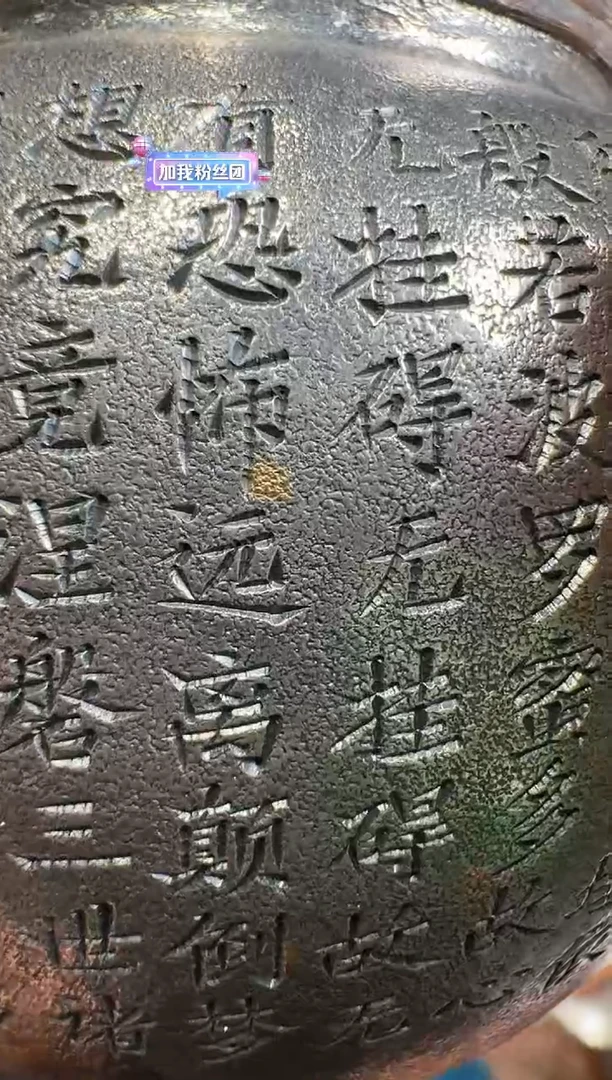 般若波罗蜜多故心
无挂碍无挂碍故无
有恐怖远离颠倒梦
想究竟涅磐三世诸
加我粉丝团